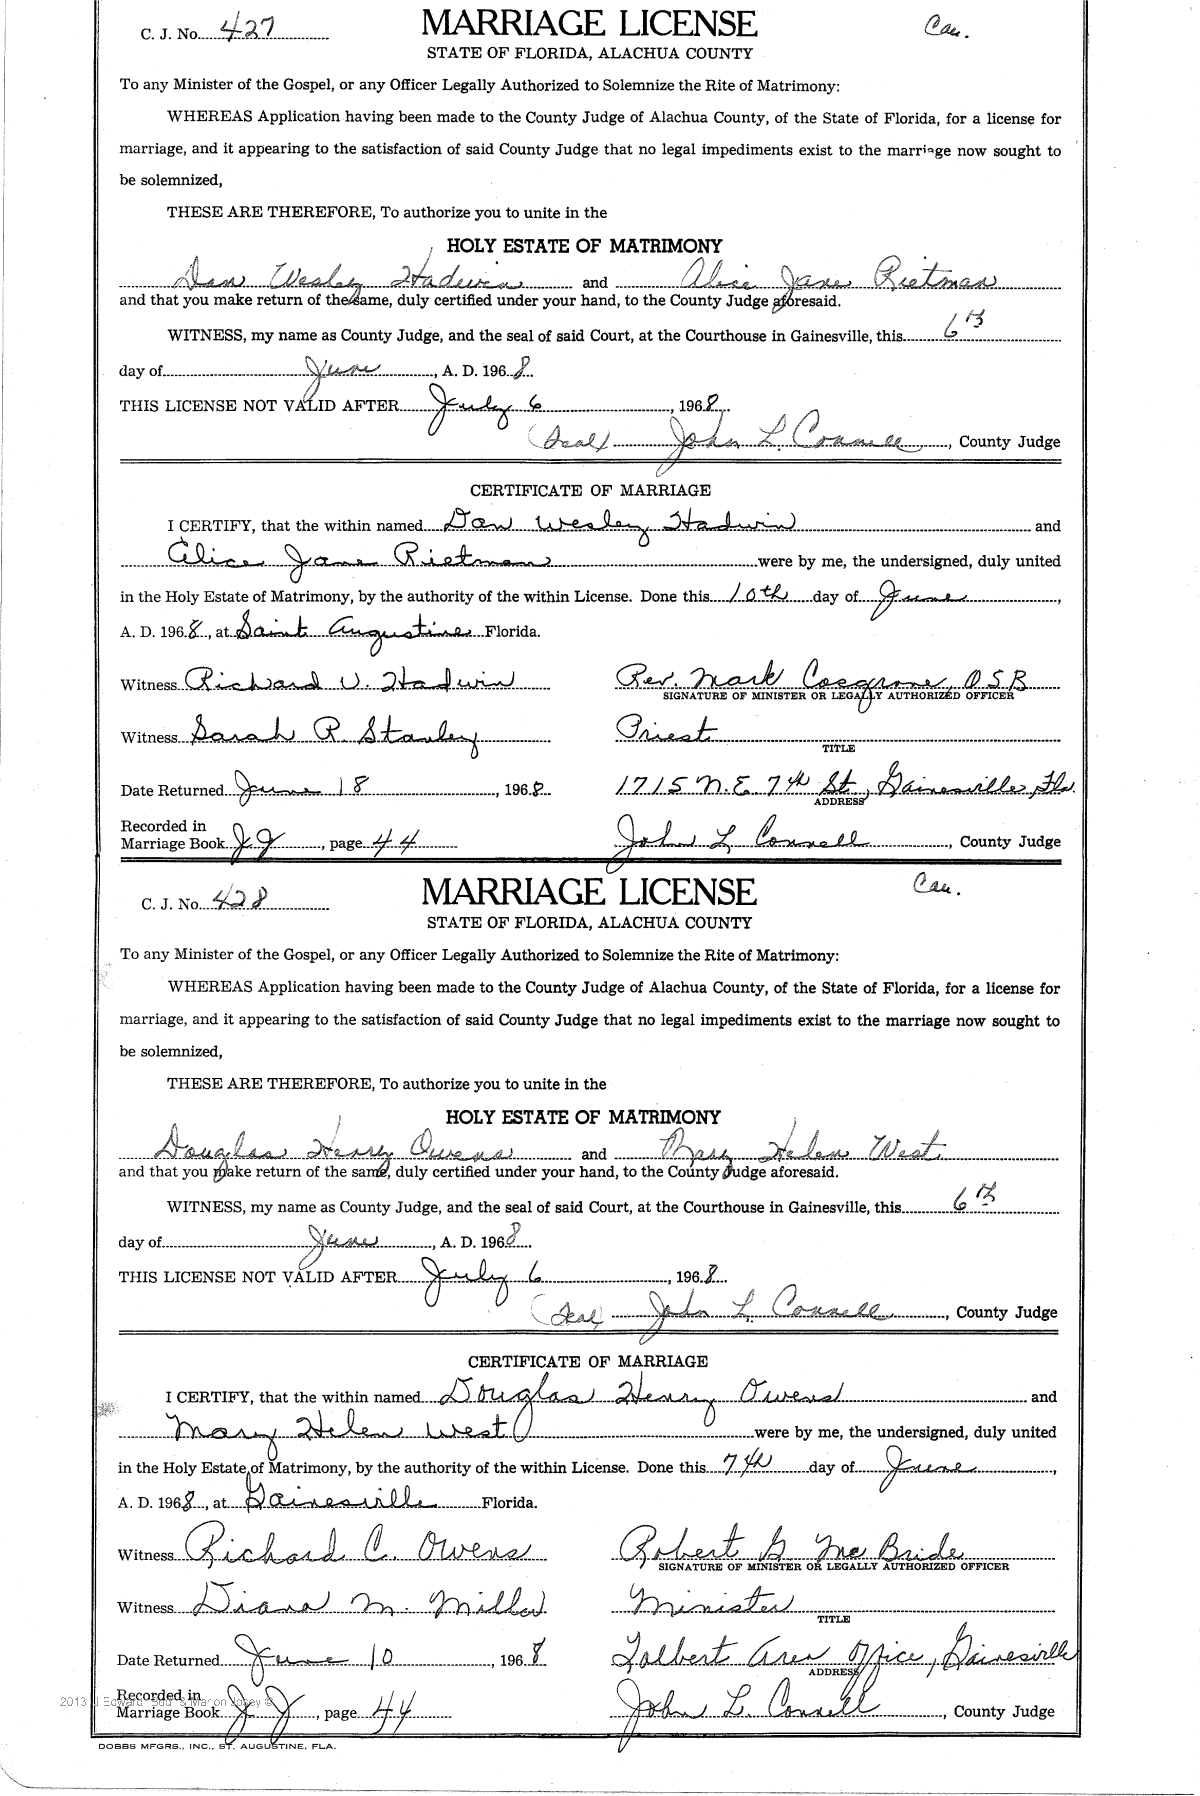 C. J. No. 427 MARRIAGE LICENSE Cau.
STATE OF FLORIDA, ALACHUA COUNTY
To any Minister of the Gospel, or any Officer Legally Authorized to Solemnize the Rite of Matrimony:
WHEREAS Application having been made to the County Judge of Alachua County, of the State of Florida, for a license for
marriage, and it appearing to the satisfaction of said County Judge that no legal impediments exist to the marriage now sought to
be solemnized,
THESE ARE THEREFORE, To authorize you to unite in the
HOLY ESTATE OF MATRIMONY
Dan Wesley Hadwin and Alice Jane Rietman
and that you make return of the same, duly certified under your hand, to the County Judge aforesaid.
WITNESS, my name as County Judge, and the seal of said Court, at the Courthouse in Gainesville, this 6th
day of June, A. D. 1968.
THIS LICENSE NOT VALID AFTER July 6, 1968.
(Seal) John L. Connell, County Judge
CERTIFICATE OF MARRIAGE
I CERTIFY, that the within named Dan Wesley Hadwin and
Alice Jane Rietman were by me, the undersigned, duly united
in the Holy Estate of Matrimony, by the authority of the within License. Done this 10th day of June,
A. D. 1968, at Saint Augustine Florida.
Witness Richard V. Hadwin Rev. Mark Cosgrove, O S B
SIGNATURE OF MINISTER OR LEGALLY AUTHORIZED OFFICER
Witness Sarah R. Stanley Priest
TITLE
Date Returned June 18, 1968. 1715 N.E. 7th St., Gainesville, Fla.
ADDRESS
Recorded in
Marriage Book JJ, page 44 John L Connell, County Judge
C. J. No. 428 MARRIAGE LICENSE Cau.
STATE OF FLORIDA, ALACHUA COUNTY
To any Minister of the Gospel, or any Officer Legally Authorized to Solemnize the Rite of Matrimony:
WHEREAS Application having been made to the County Judge of Alachua County, of the State of Florida, for a license for
marriage, and it appearing to the satisfaction of said County Judge that no legal impediments exist to the marriage now sought to
be solemnized,
THESE ARE THEREFORE, To authorize you to unite in the
HOLY ESTATE OF MATRIMONY
Douglas Henry Owens and Mary Helen West
and that you make return of the same, duly certified under your hand, to the County Judge aforesaid.
WITNESS, my name as County Judge, and the seal of said Court, at the Courthouse in Gainesville, this 6th
day of June, A. D. 1968.
THIS LICENSE NOT VALID AFTER July 6, 1968.
(Seal) John L. Connell, County Judge
CERTIFICATE OF MARRIAGE
I CERTIFY, that the within named Douglas Henry Owens and
Mary Helen West were by me, the undersigned, duly united
in the Holy Estate of Matrimony, by the authority of the within License. Done this 7th day of June,
A. D. 1968, at Gainesville Florida.
Witness Richard C. Owens Robert G. McBride
SIGNATURE OF MINISTER OR LEGALLY AUTHORIZED OFFICER
Witness Diana M. Miller Minister
TITLE
Date Returned June 10, 1968. Tolbert Area Office, Gainesville
ADDRESS
Recorded in
Marriage Book JJ, page 44 John L. Connell, County Judge
DOBBS MFGRS., INC., ST. AUGUSTINE, FLA.